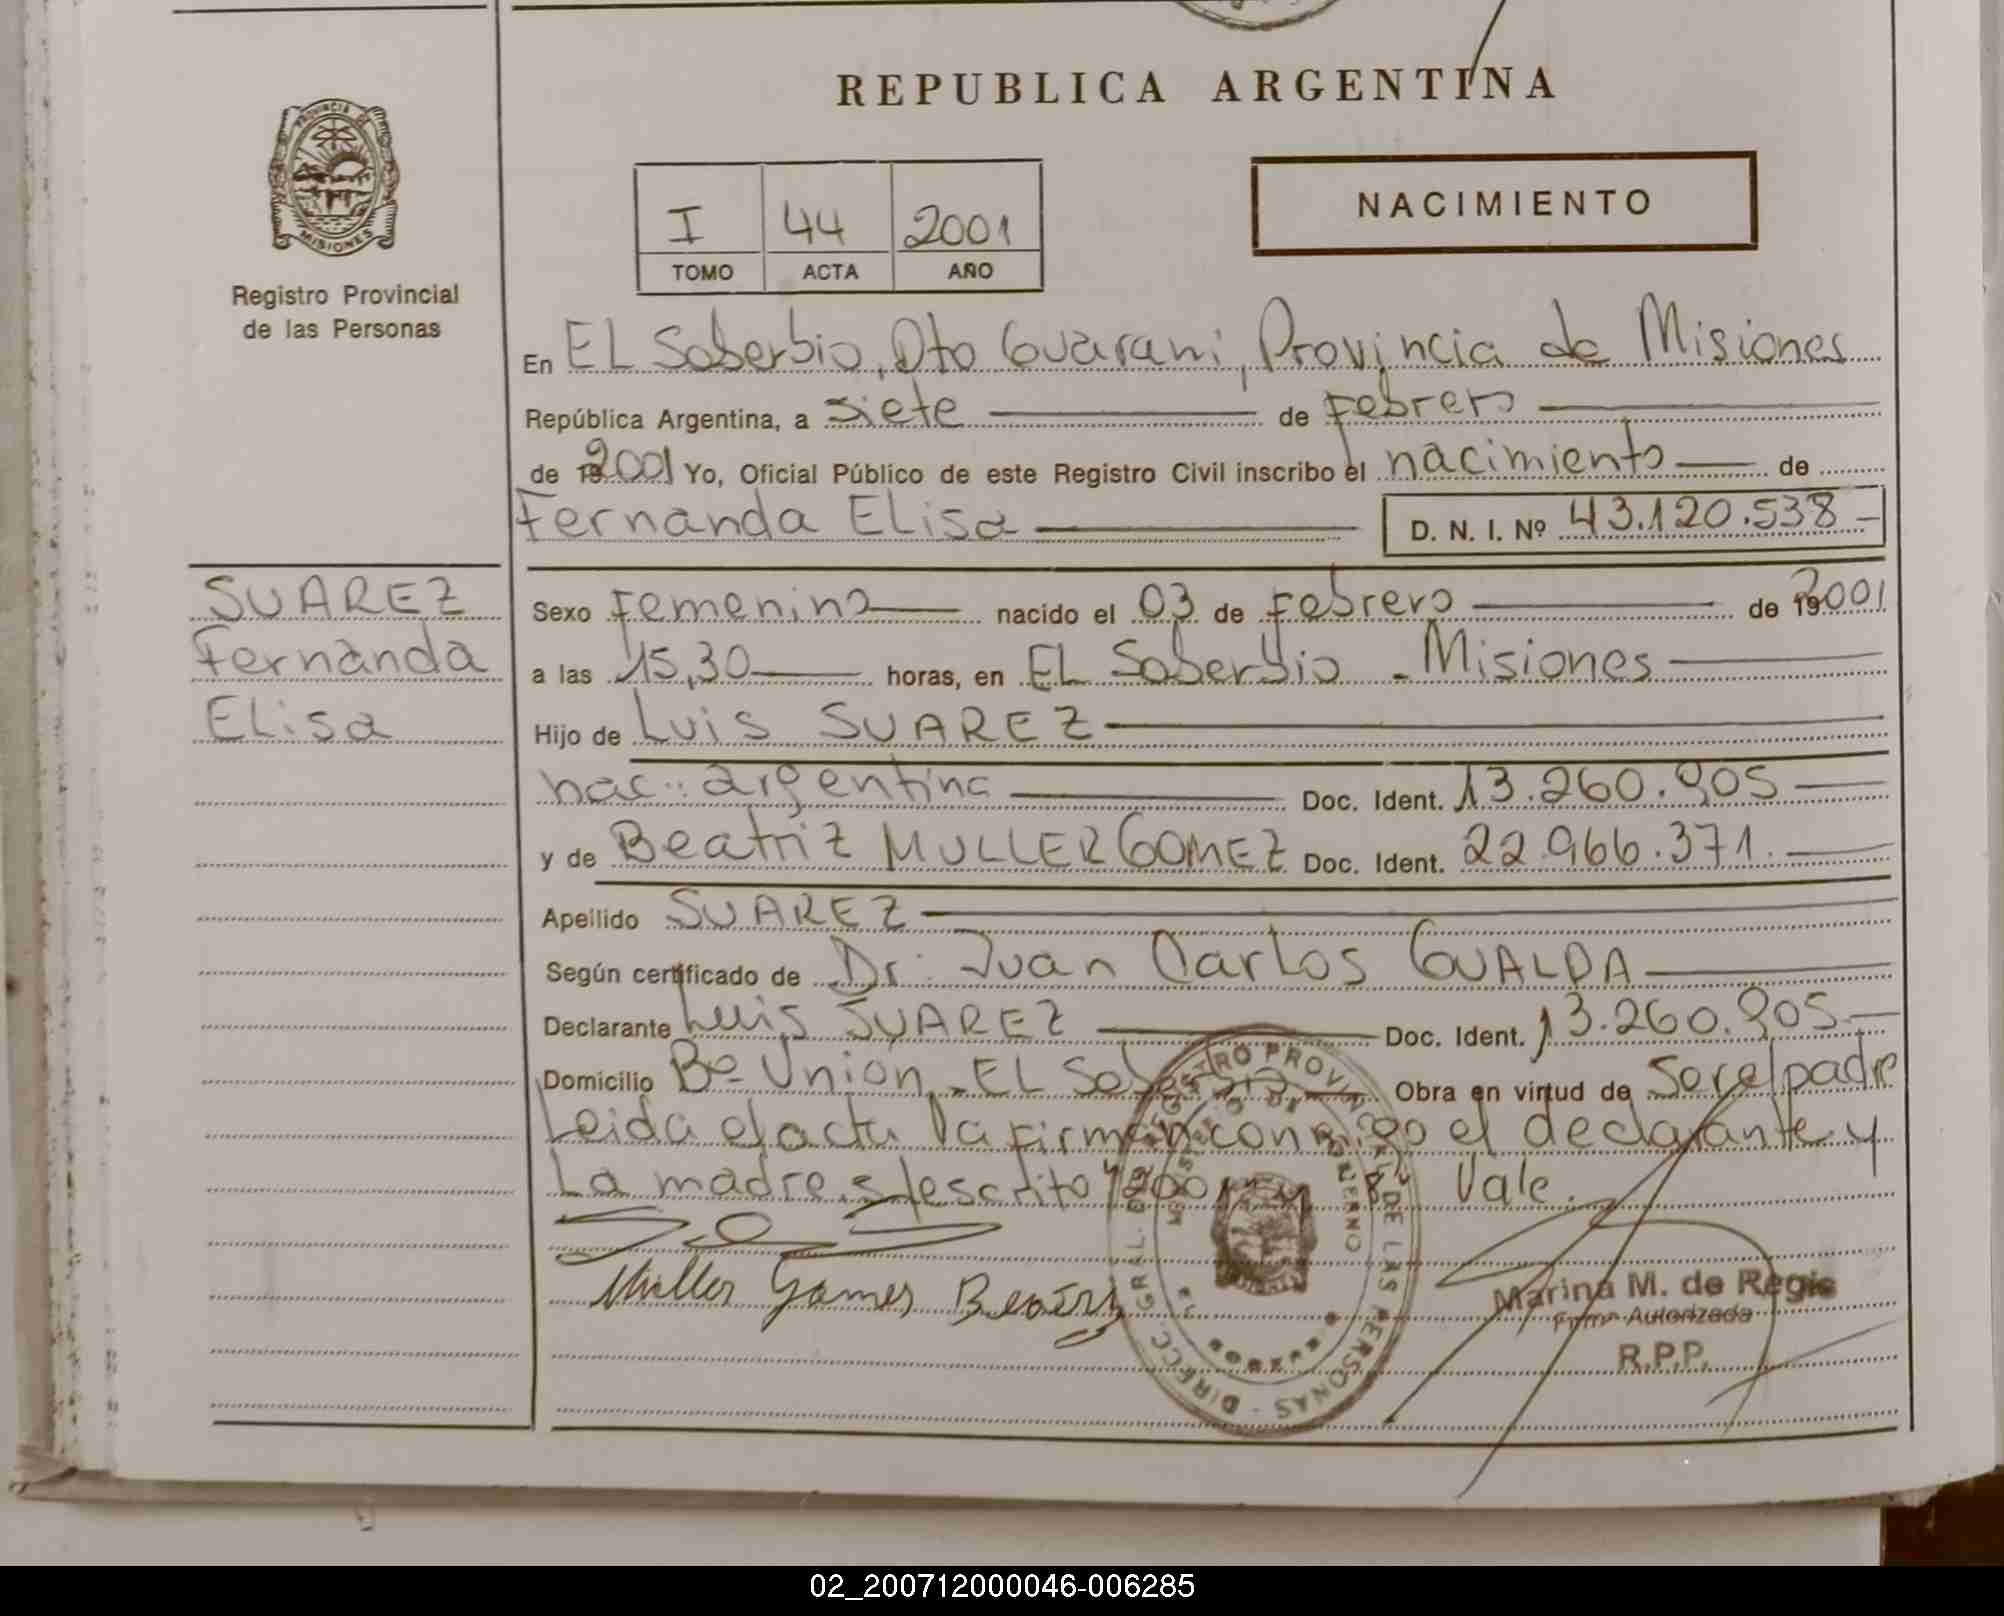 REPUBLICA ARGENTINA
PROVINCIA DE
MISIONES
Registro Provincial
de las Personas
I 44 2001
TOMO ACTA AÑO
NACIMIENTO
En EL Soberbio, Dto Guarani, Provincia de Misiones
República Argentina, a siete de Febrero
de 192001 Yo, Oficial Público de este Registro Civil inscribo el nacimiento de
Fernanda ELisa D. N. I. Nº 43.120.538
SUAREZ
Fernanda
ELisa
Sexo Femenino nacido el 03 de Febrero de 192001
a las 15,30 horas, en EL Soberbio - Misiones
Hijo de Luis SUAREZ
nac.: argentina Doc. Ident. 13.260.905
y de Beatriz MULLER GOMEZ Doc. Ident. 22.966.371.
Apellido SUAREZ
Según certificado de Dr. Juan Carlos GUALDA
Declarante Luis SUAREZ Doc. Ident. 13.260.905
Domicilio Bº Union - EL Soberbio Obra en virtud de Ser el padre
Leida el acta la firman conmigo el declarante y
La madre. s/escrito "2001" Vale.
Muller Gomes Beatriz
DIRECC. GRAL. REGISTRO PROVINCIAL DE LAS PERSONAS
Marina M. de Regis
Firma Autorizada
R.P.P.
02_200712000046-006285